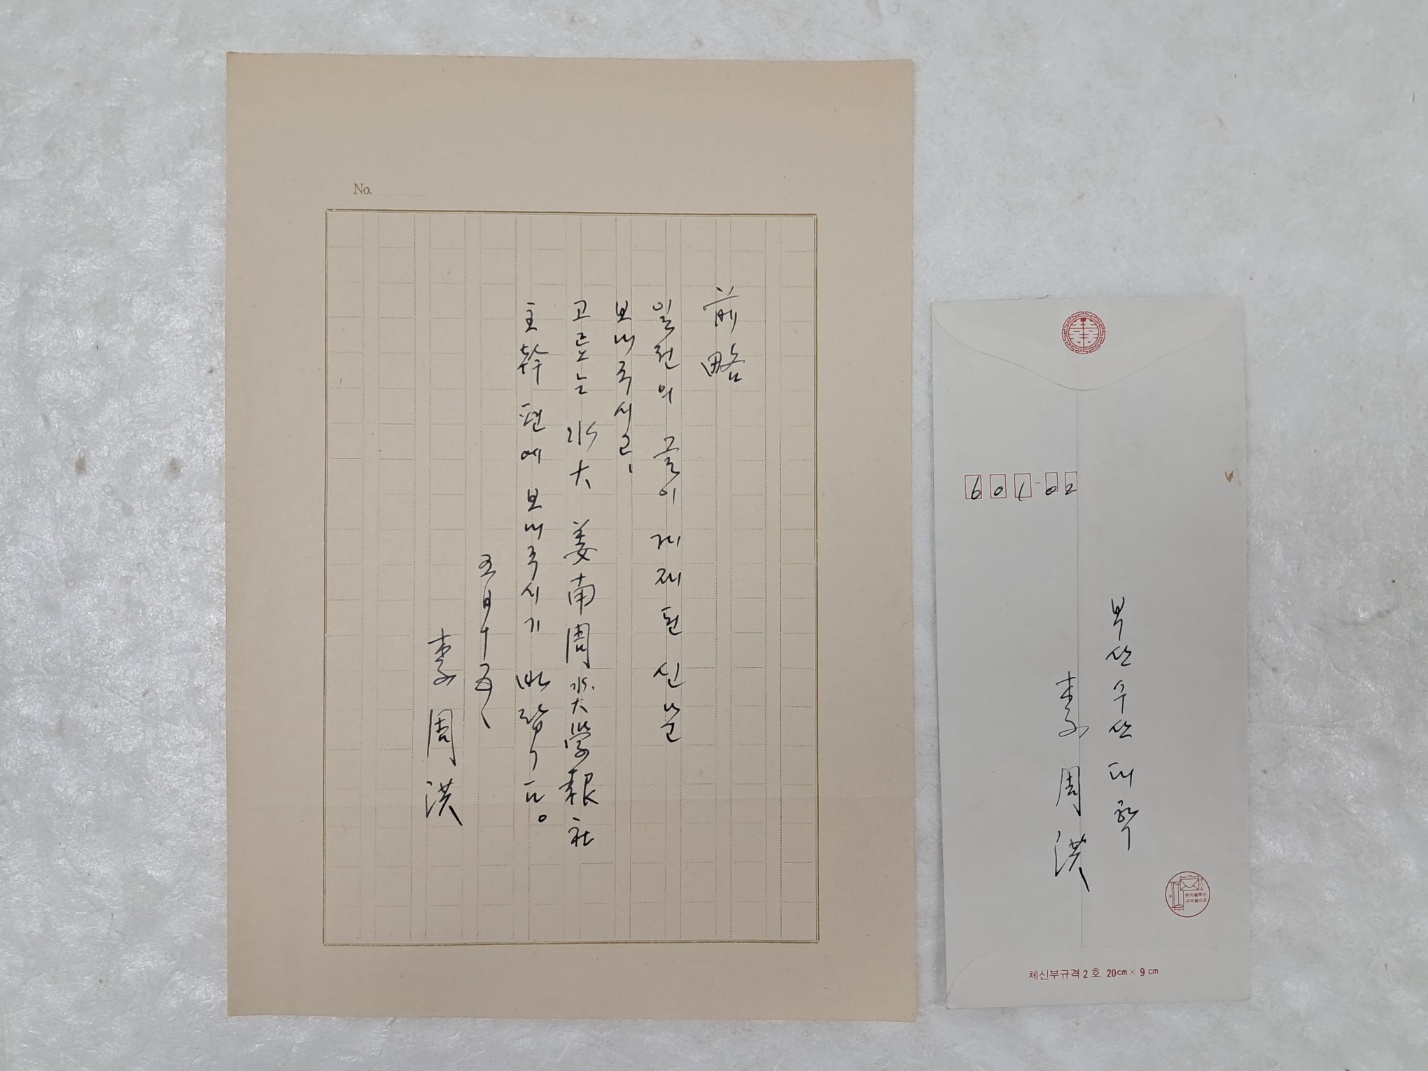 No.
前略
일전의 글이 게재된 신문
보내주시고,
고료는 水大 姜南周 水大學報社
主幹 편에 보내주시기 바랍니다.
五月十五日
李周洪
601-02
부산수산대학
李周洪
체신부규격 2호 20cm × 9cm